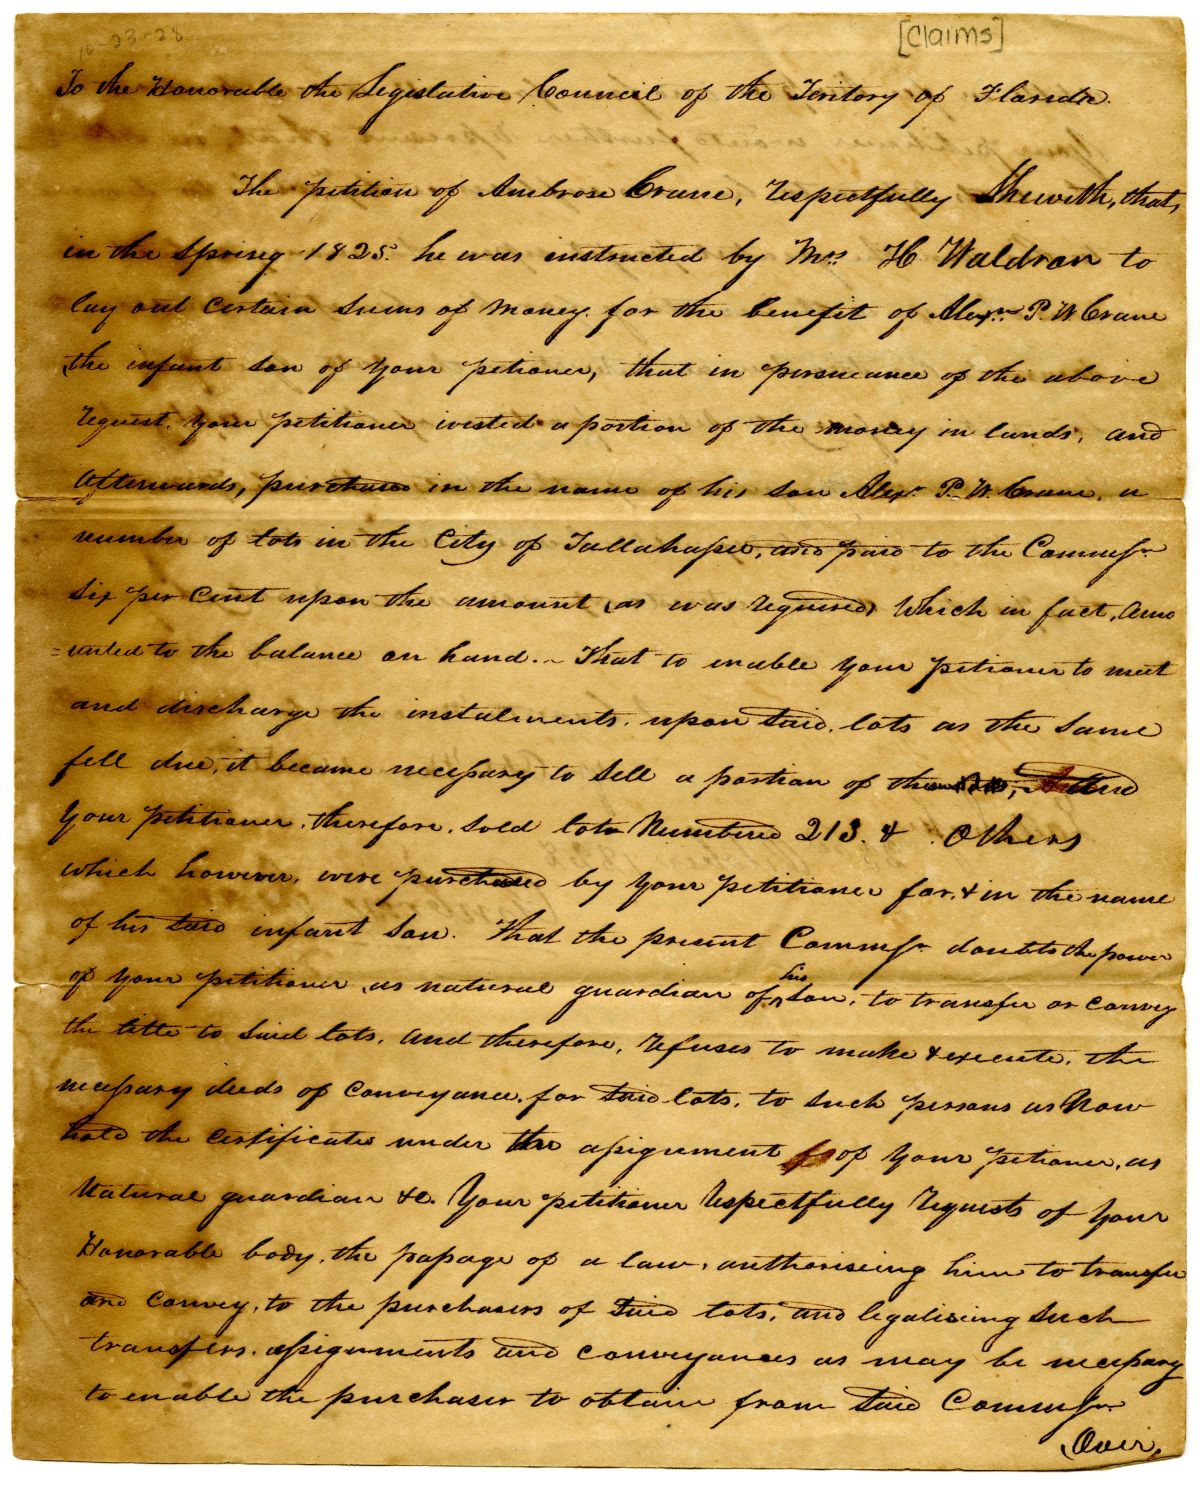 10-23-28
[Claims]
To the Honorable the Legislative Council of the Teritory of Florida.
The petition of Ambrose Crane, respectfully Sheweth, that,
in the Spring 1825. he was instructed by Mrs H Waldron to
lay out certain sums of money for the benefit of Alexr. P. W. Crane
the infant son of your petioner, that in persueance of the above
request, your petitioner ivested a portion of the money in lands, and
afterwards, purchased in the name of his son Alexr. P. W. Crane, a
number of lots in the City of Tallahassee, and paid to the Commssr
six per cent upon the amount, as was required, which in fact, amo
=unted to the balance on hand.~ That to enable your petioner to meet
and discharge the instalments, upon said, lots as the same
fell due, it became necessary to sell a portion of them
your petitioner, therefore, sold lots Numbered 213. & Others
which however, were purchased by your petitioner for, & in the name
of his said infant son. That the present Commssr doubts the power
of your petitioner, as natural guardian of his son, to transfer or convey
the title to said lots, and therefore, refuses to make & execute, the
necessary deeds of conveyance, for said lots, to such persons as now
hold the certificates under the assignment of your petioner, as
natural guardian &c. Your petitioner respectfully requests of your
Honorable body, the passage of a law, authoriseing him to transfer
and convey, to the purchasers of said lots, and legalising such
transfers, assignments and conveyances as may be necessary
to enable the purchaser to obtain from said Commssr
Over.